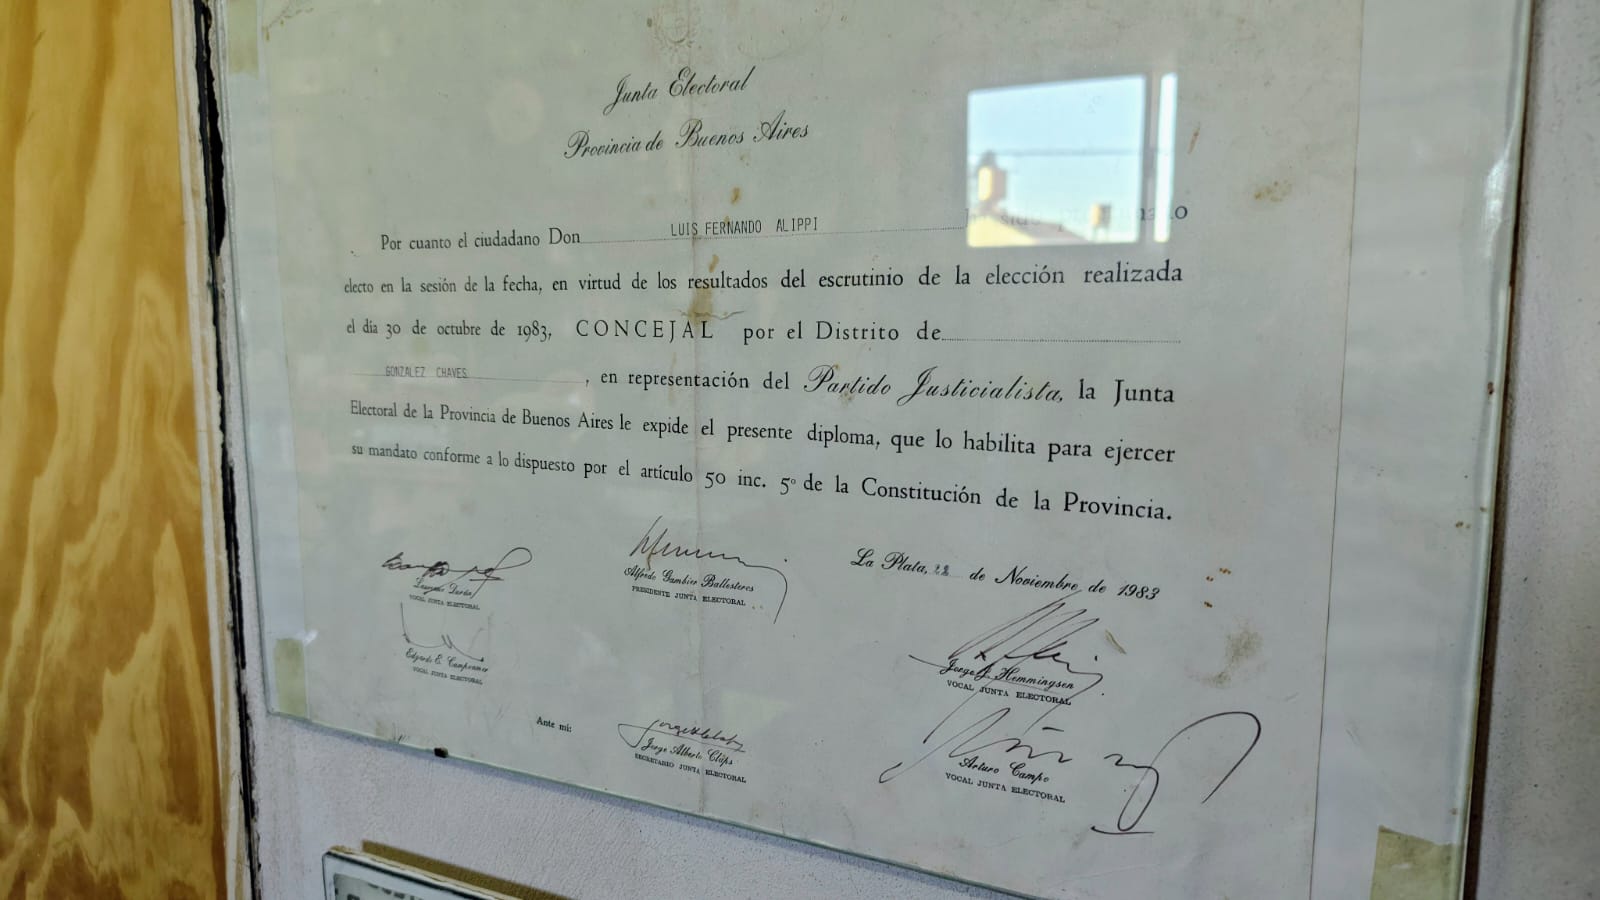 Junta Electoral
Provincia de Buenos Aires
Por cuanto el ciudadano Don LUIS FERNANDO ALIPPI ha sido proclamado
electo en la sesión de la fecha, en virtud de los resultados del escrutinio de la elección realizada
el día 30 de octubre de 1983, CONCEJAL por el Distrito de
GONZALEZ CHAVES, en representación del Partido Justicialista, la Junta
Electoral de la Provincia de Buenos Aires le expide el presente diploma, que lo habilita para ejercer
su mandato conforme a lo dispuesto por el artículo 50 inc. 5º de la Constitución de la Provincia.
La Plata, 22 de Noviembre de 1983
Alfredo Gambier Ballesteros
PRESIDENTE JUNTA ELECTORAL
Durán
VOCAL JUNTA ELECTORAL
Edgardo E.
VOCAL JUNTA ELECTORAL
Jorge J. Hemmingsen
VOCAL JUNTA ELECTORAL
Ante mí:
Jorge Alberto
SECRETARIO JUNTA ELECTORAL
Arturo Campo
VOCAL JUNTA ELECTORAL